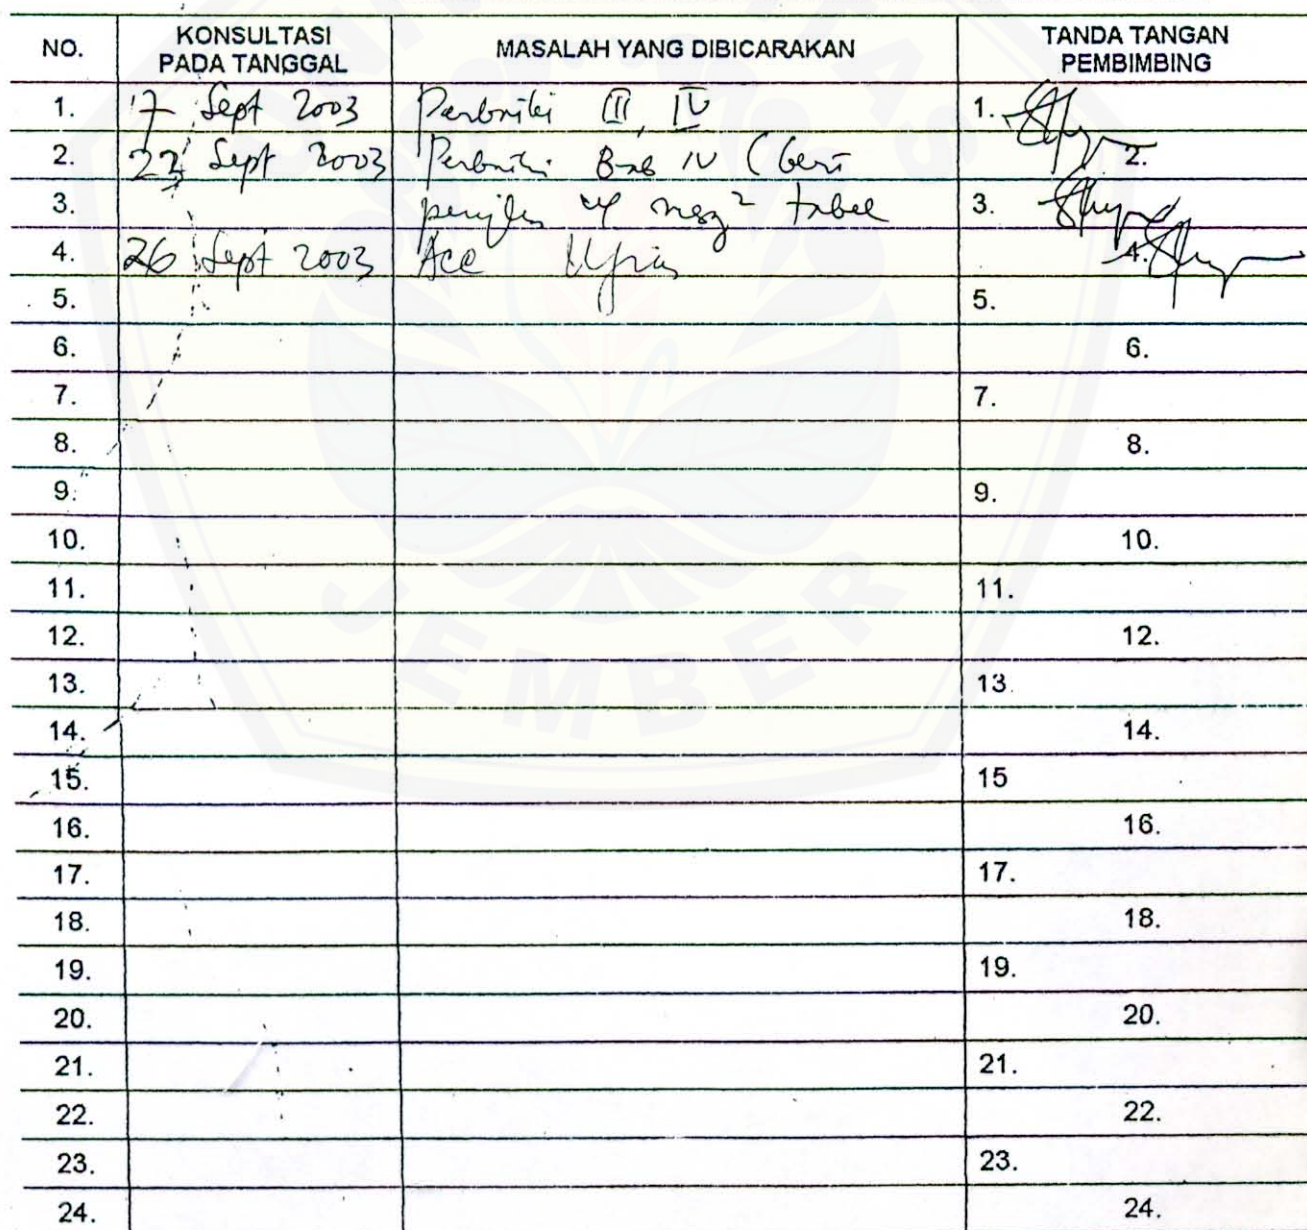 NO. KONSULTASI PADA TANGGAL MASALAH YANG DIBICARAKAN TANDA TANGAN PEMBIMBING
1. 17 Sept 2003 Perbaiki III, IV 1.
2. 23 Sept 2003 Perbaiki Bab IV (beri 2.
3. tabel 3.
4. 26 Sept 2003 Acc Ujian 4.
5. 5.
6. 6.
7. 7.
8. 8.
9. 9.
10. 10.
11. 11.
12. 12.
13. 13.
14. 14.
15. 15
16. 16.
17. 17.
18. 18.
19. 19.
20. 20.
21. 21.
22. 22.
23. 23.
24. 24.
JEMBER